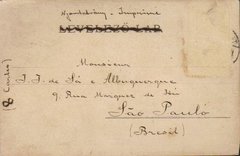 Nyomtatvány - Imprimé
LEVELEZŐ-LAP
Monsieur
J. J. de Sá e Albuquerque
9, Rua Marquez de Itú
São Paulo
(Brésil)